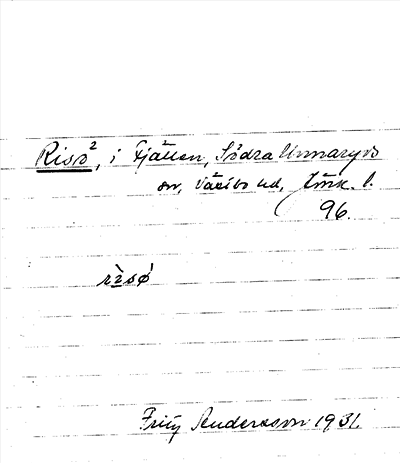 Risö², i Fjällen, Södra Unnaryds
sn, Västbo hd, Jönk. l.
96.
rìsǿ
Fritz Andersson 1931.